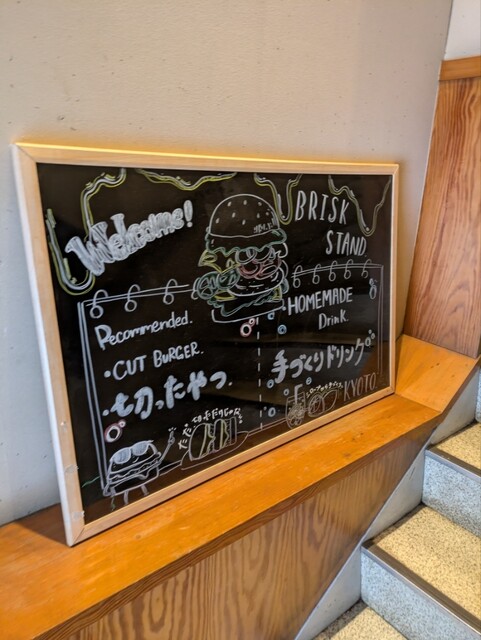 Welcome!
BRISK
STAND
Recommended.
・CUT BURGER.
・切ったやつ。
HOMEMADE
Drink.
手づくりドリンク
KYOTO